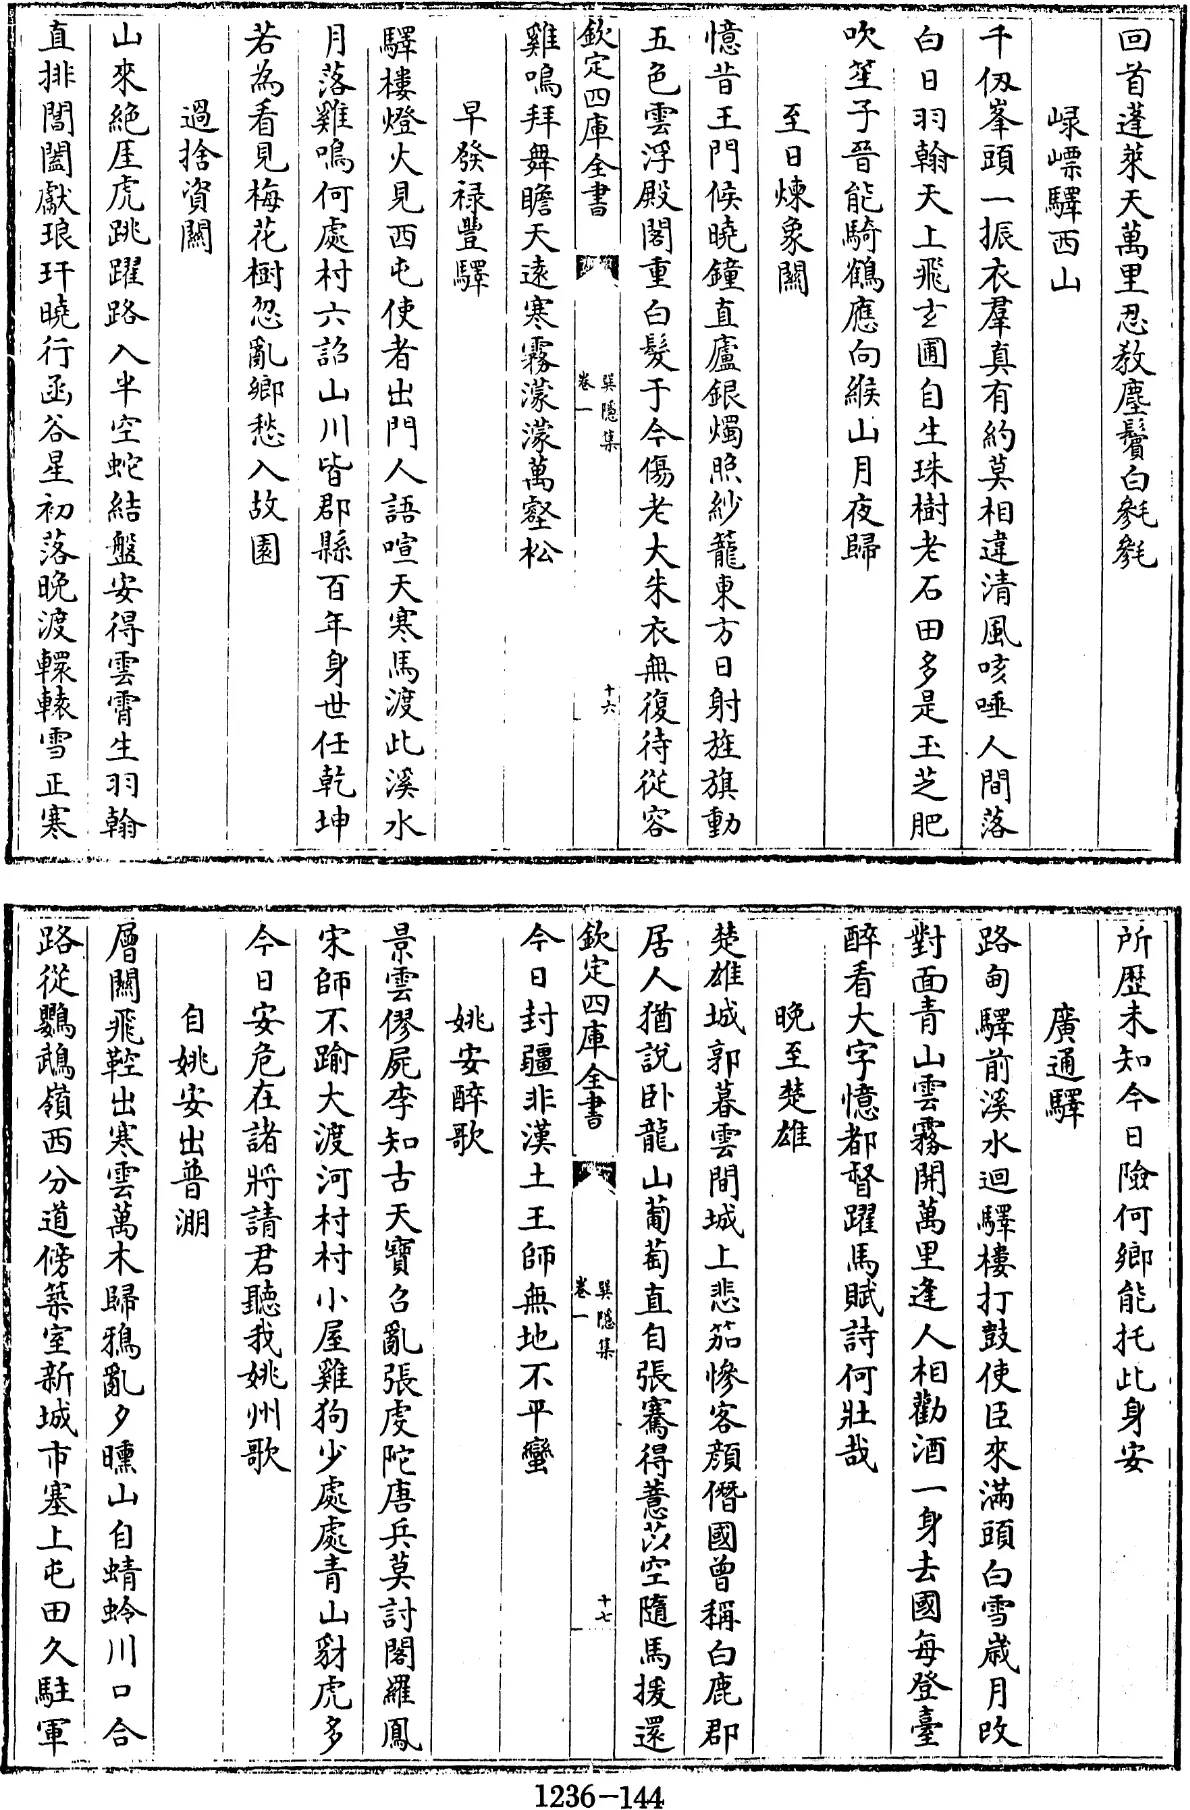 回首蓬萊天萬里忍教塵鬢白毿毿
嵊嵊驛西山
千仭峯頭一振衣羣真有約莫相違清風咳唾人間落
白日羽翰天上飛玄圃自生珠樹老石田多是玉芝肥
吹笙子晉能騎鶴應向緱山月夜歸
至日煉象關
憶昔王門候曉鐘直廬銀燭照紗籠東方日射旌旗動
五色雲浮殿閣重白髮于今傷老大朱衣無復待從容
欽定四庫全書
巽隱集
卷一
十六
雞鳴拜舞瞻天遠寒霧濛濛萬壑松
早發祿豐驛
驛樓燈火見西屯使者出門人語喧天寒馬渡此溪水
月落雞鳴何處村六詔山川皆郡縣百年身世任乾坤
若為看見梅花樹忽亂鄉愁入故園
過捨資關
山來絶厓虎跳躍路入半空蛇結盤安得雲霄生羽翰
直排閶闔獻琅玕曉行函谷星初落晚渡轘轅雪正寒
所歷未知今日險何鄉能托此身安
廣通驛
路甸驛前溪水迴驛樓打鼓使臣來滿頭白雪歲月改
對面青山雲霧開萬里逢人相勸酒一身去國每登臺
醉看大字憶都督躍馬賦詩何壯哉
晚至楚雄
楚雄城郭暮雲間城上悲笳慘客顔僭國曾稱白鹿郡
居人猶說卧龍山葡萄直自張騫得薏苡空隨馬援還
欽定四庫全書
巽隱集
卷一
十七
今日封疆非漢土王師無地不平蠻
姚安醉歌
景雲僇屍李知古天寶召亂張虔陀唐兵莫討閣羅鳳
宋師不踰大渡河村村小屋雞狗少處處青山豺虎多
今日安危在諸將請君聽我姚州歌
自姚安出普淜
層關飛鞚出寒雲萬木歸鴉亂夕曛山自蜻蛉川口合
路從鸚鵡嶺西分道傍築室新城市塞上屯田久駐軍
1236-144